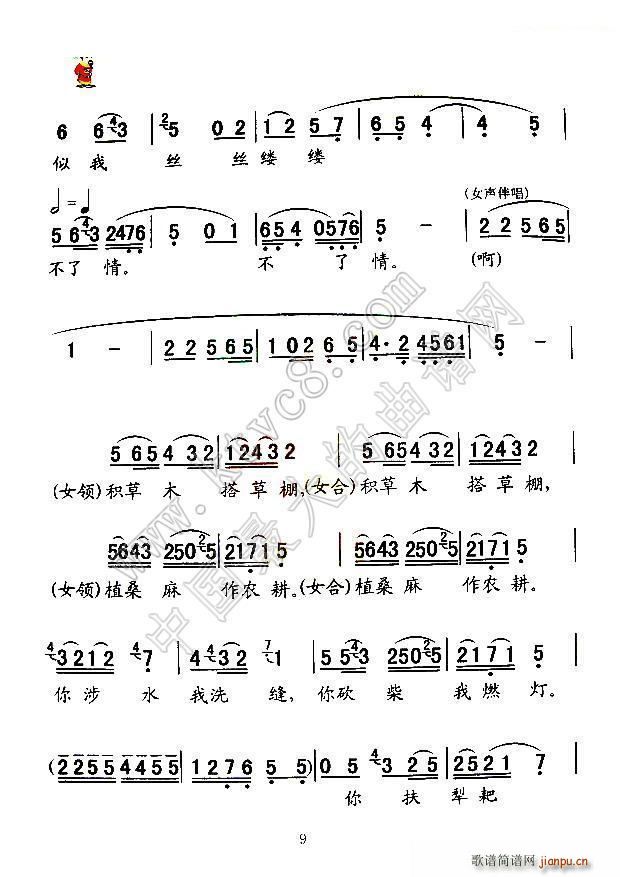 6 6 4 3 | 2 5 0 2 | 1 2 5 7 | 6 5 4 4 5 |
似我 丝 丝缕缕
(女声伴唱)
5 6 4 3 2476 | 5 0 1 | 654 0576 | 5 - | 2 2 5 6 5 |
不了 情。 不 了 情。 (啊)
1 - | 2 2 5 6 5 | 1 0 2 6 5 | 4· 2 4561 | 5 - |
5 6 5 4 3 2 | 1 2 4 3 2 | 5 6 5 4 3 2 | 1 2 4 3 2 |
(女领)积草 木 搭草棚,(女合)积草 木 搭草棚,
5643 250 2 5 | 2171 5 | 5643 250 2 5 | 2171 5 |
(女领)植桑 麻 作农 耕。(女合)植桑 麻 作农 耕。
4 3212 4 7 | 1 2 4 5 7 1 | 5 5 4 3 250 2 5 | 2171 5 |
你涉 水 我洗 缝,你砍 柴 我燃 灯。
(2255 4455 | 1276 5 5) | 0 5 4 3 2 5 | 2521 7 |
你 扶 犁耙
9
www.ktvc8.com
中国最大的曲谱网
歌谱简谱网
jianpu.cn